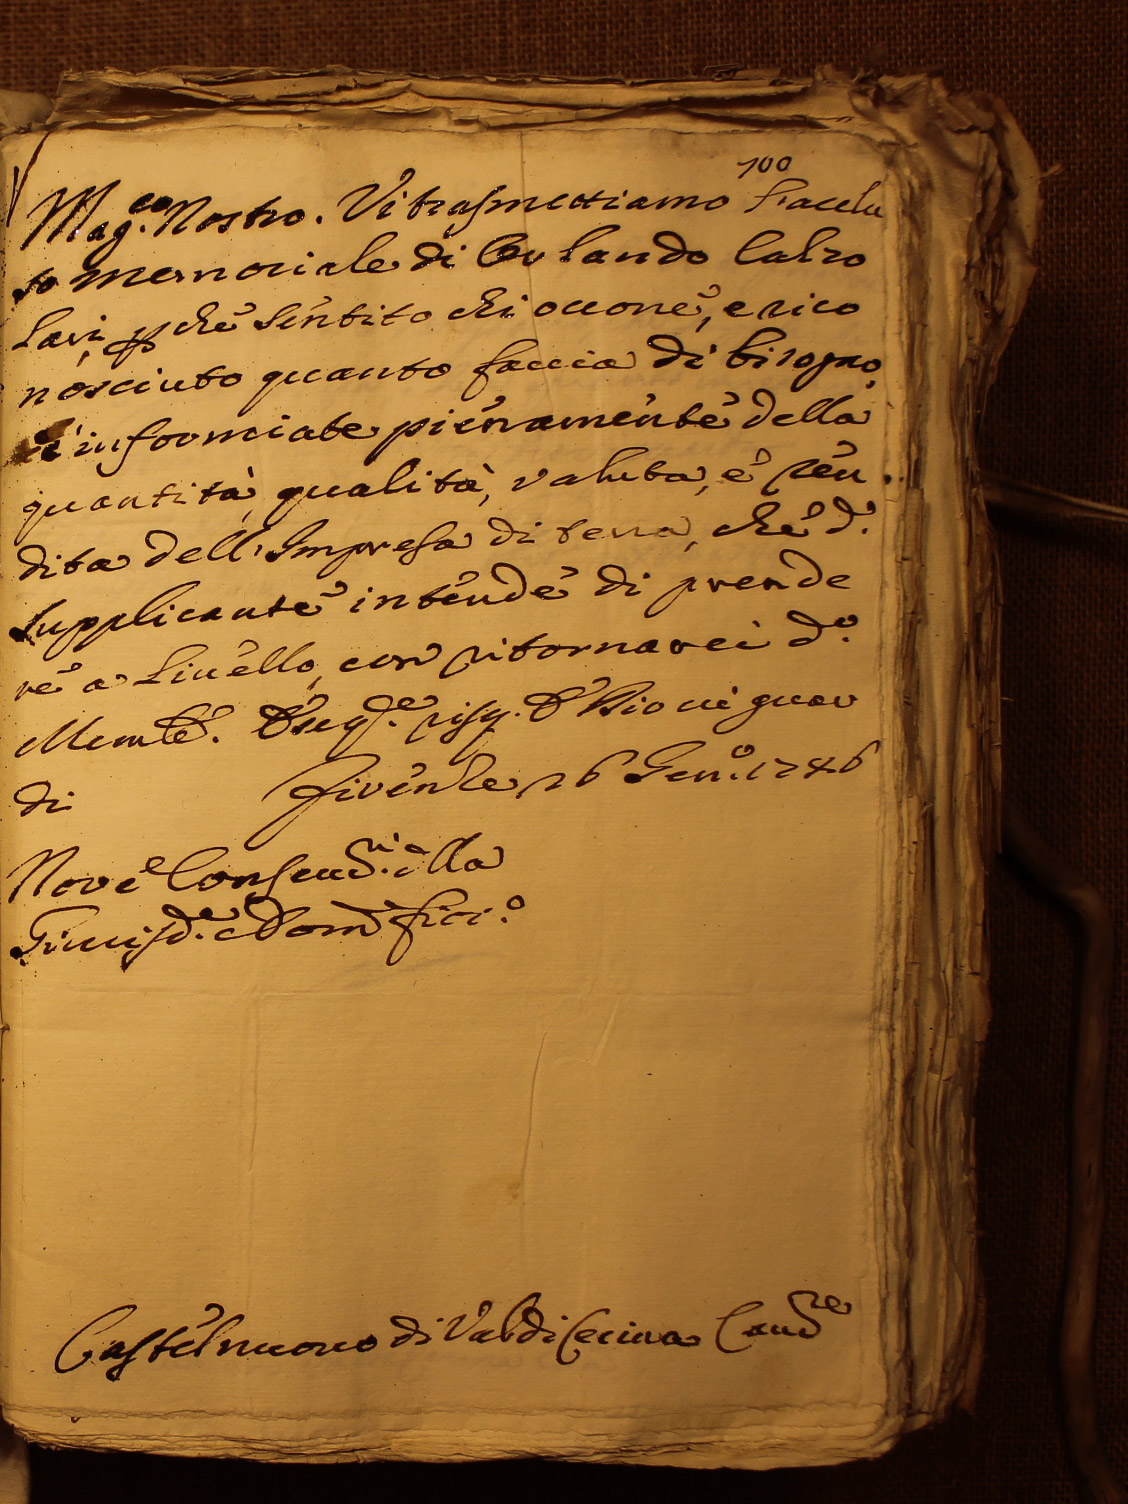 100
Mag.co Nostro. Vi trasmettiamo l'acclu
so memoriale di Orlando Calzo
lari, p che sentito chi occorre, e rico
nosciuto quanto faccia di bisogno,
c'informiate pienamente della
quantità, qualità, valuta, e ren
dita dell'Impresa di terra, che d.o
supplicante intende di prende
re a Livello, con ritornarci d.o
Mem.le. risp. Dio vi guar
di Firenze 26 Gen.o 1746
Nove Conserv.ri della
Giurisd.e e Dom. fior.o
Castelnuovo di Val di Cecina Canc.re